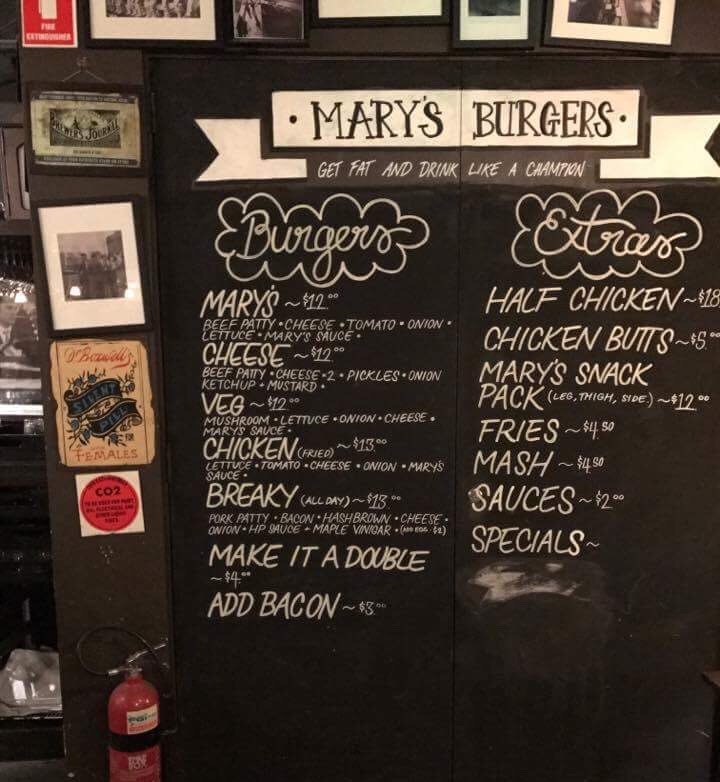 FIRE
EXTINGUISHER
BREWER'S JOURNAL
· MARY'S BURGERS ·
GET FAT AND DRINK LIKE A CHAMPION
Burgers
MARY'S ~ $12.00
BEEF PATTY • CHEESE • TOMATO • ONION •
LETTUCE • MARY'S SAUCE •
CHEESE ~ $12.00
BEEF PATTY • CHEESE • 2 • PICKLES • ONION
KETCHUP + MUSTARD •
VEG ~ $12.00
MUSHROOM • LETTUCE • ONION • CHEESE •
MARY'S SAUCE •
CHICKEN (FRIED) ~ $13.00
LETTUCE • TOMATO • CHEESE • ONION • MARY'S
SAUCE •
BREAKY (ALL DAY) ~ $13.00
PORK PATTY • BACON • HASHBROWN • CHEESE •
ONION • HP SAUCE + MAPLE VINIGAR • (ADD EGG $2)
MAKE IT A DOUBLE
~ $4.00
ADD BACON ~ $3.00
Extras
HALF CHICKEN ~ $18
CHICKEN BUTTS ~ $5.00
MARY'S SNACK
PACK (LEG, THIGH, SIDE.) ~ $12.00
FRIES ~ $4.50
MASH ~ $4.50
SAUCES ~ $2.00
SPECIALS ~
SILENT
PILL
FOR
FEMALES
CO2